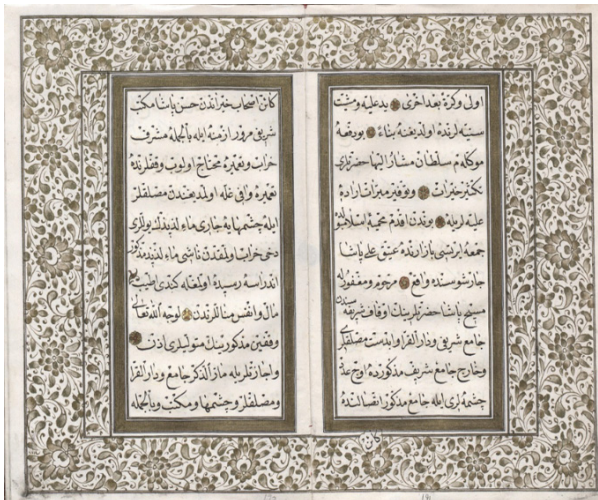 اولى وكرة بعد اخرى بد عليه وسنت
سنيه لرنده اولديغنه بناء بو دفعه
موكله م سلطان مشار اليها حضرتلرى
تكثير خيرات وتوفير مبرات اراده
عليه لريله بوندن اقدم محميه اسلامبولده
جمعه ايرتسى بازارنده عتيق على پاشا
جارشوسنده واقع مرحوم ومغفور له
مسيح پاشا حضرتلرينك اوقاف شريفه سندن
جامع شريف ودار القرا وابدست مصلقلرى
وخارج جامع شريف مذكورده اوج عدد
چشمه لرى ايله جامع مذكور اتصالنده
كائن اصحاب خيراتدن حسن پاشا مكتب
شريفى مرور ازمنه ايله بالجمله مشرف
خراب وتعميره محتاج اولوب وقفلرنده
تعميره وافى غله اولمديغندن مصلقلر
ايله چشمه لره جارى ماء لذيذك يوللرى
دخى خراب ولمقدن ناشى ماء لذيذ مذكور
اندراسه رسيده اولمغله كندى طيب
مال وانفس منالارندن لوجه الله تعالى
وقفين مذكورينك متوليلرى اذن
واجازتلريله مار الذكر جامع ودار القرا
ومصلقلر وچشمه لر ومكتب وبالجمله